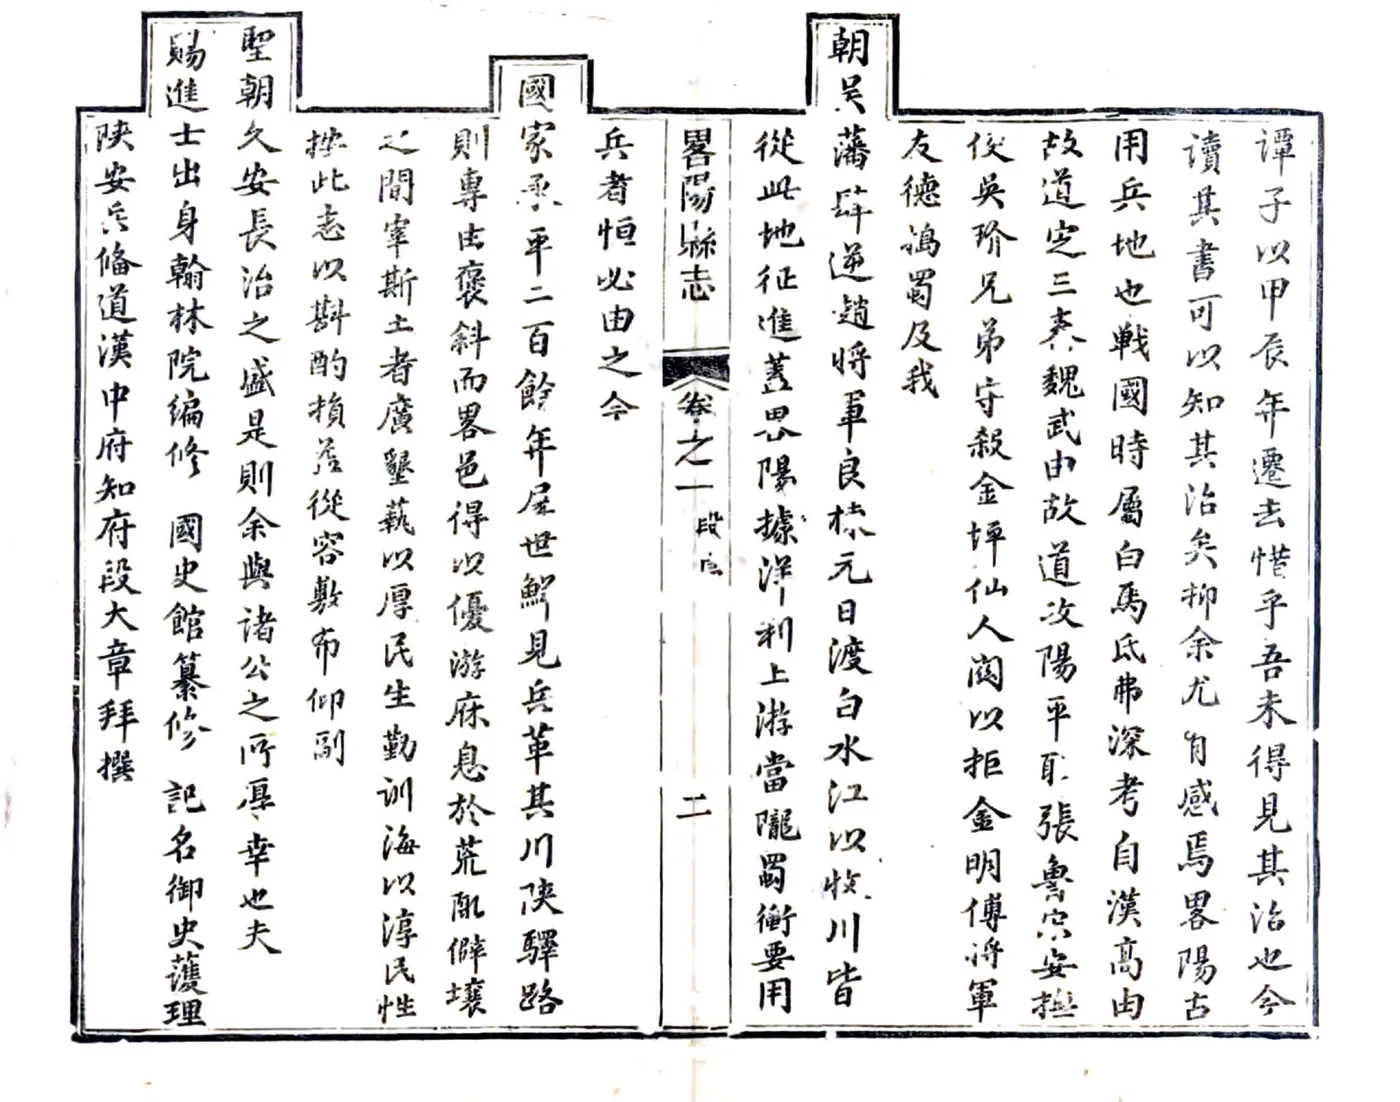 譚子以甲辰年遷去惜乎吾未得見其治也今
讀其書可以知其治矣抑余尤有感焉畧陽古
用兵地也戰國時屬白馬氐弗深考自漢高由
故道定三秦魏武由故道攻陽平取張魯宋安撫
使吳玠兄弟守殺金坪仙人関以拒金明傅將軍
友德搗蜀及我
朝吴藩肆逆趙將軍良棟元日渡白水江以收川皆
從此地征進葢畧陽據洋利上游當隴蜀衝要用
畧陽縣志 卷之一 段序 二
兵者恒必由之今
國家承平二百餘年屋世鮮見兵革其川陝驛路
則專由褒斜而畧邑得以優游庥息於荒陬僻壤
之間宰斯土者廣墾蓺以厚民生勤訓誨以淳民性
按此志以斟酌損益從容敷布仰副
聖朝久安長治之盛是則余與諸公之所厚幸也夫
賜進士出身翰林院編修 國史館纂修 記名御史護理
陝安兵備道漢中府知府段大章拜撰